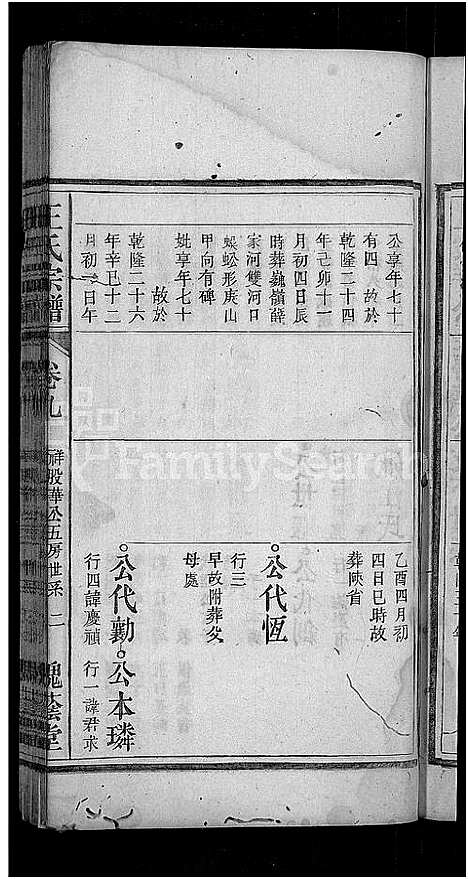 公享年七十
有四 故於
乾隆二十四
年己卯十一
月初四日辰
時葬巍嶺薛
家河雙河口
蜈蚣形庚山
甲向有碑
妣享年七十
故於
乾隆二十六
年辛巳十二
月初 日午
乙酉四月初
四日巳時故
葬陝省
公代恆
行三
早故附葬父
母處
公代勳
行四諱慶禎
公本璘
行一諱君求
王氏宗譜
卷九
祥股華公五房世系
二
槐蔭堂
FamilySearch